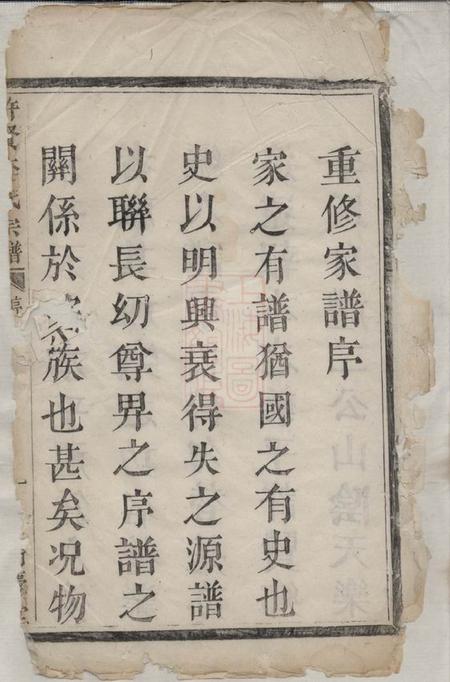 重修家譜序
家之有譜猶國之有史也
史以明興衰得失之源譜
以聯長幼尊界之序譜之
關係於家族也甚矣况物
氏宗譜
公山陰天樂